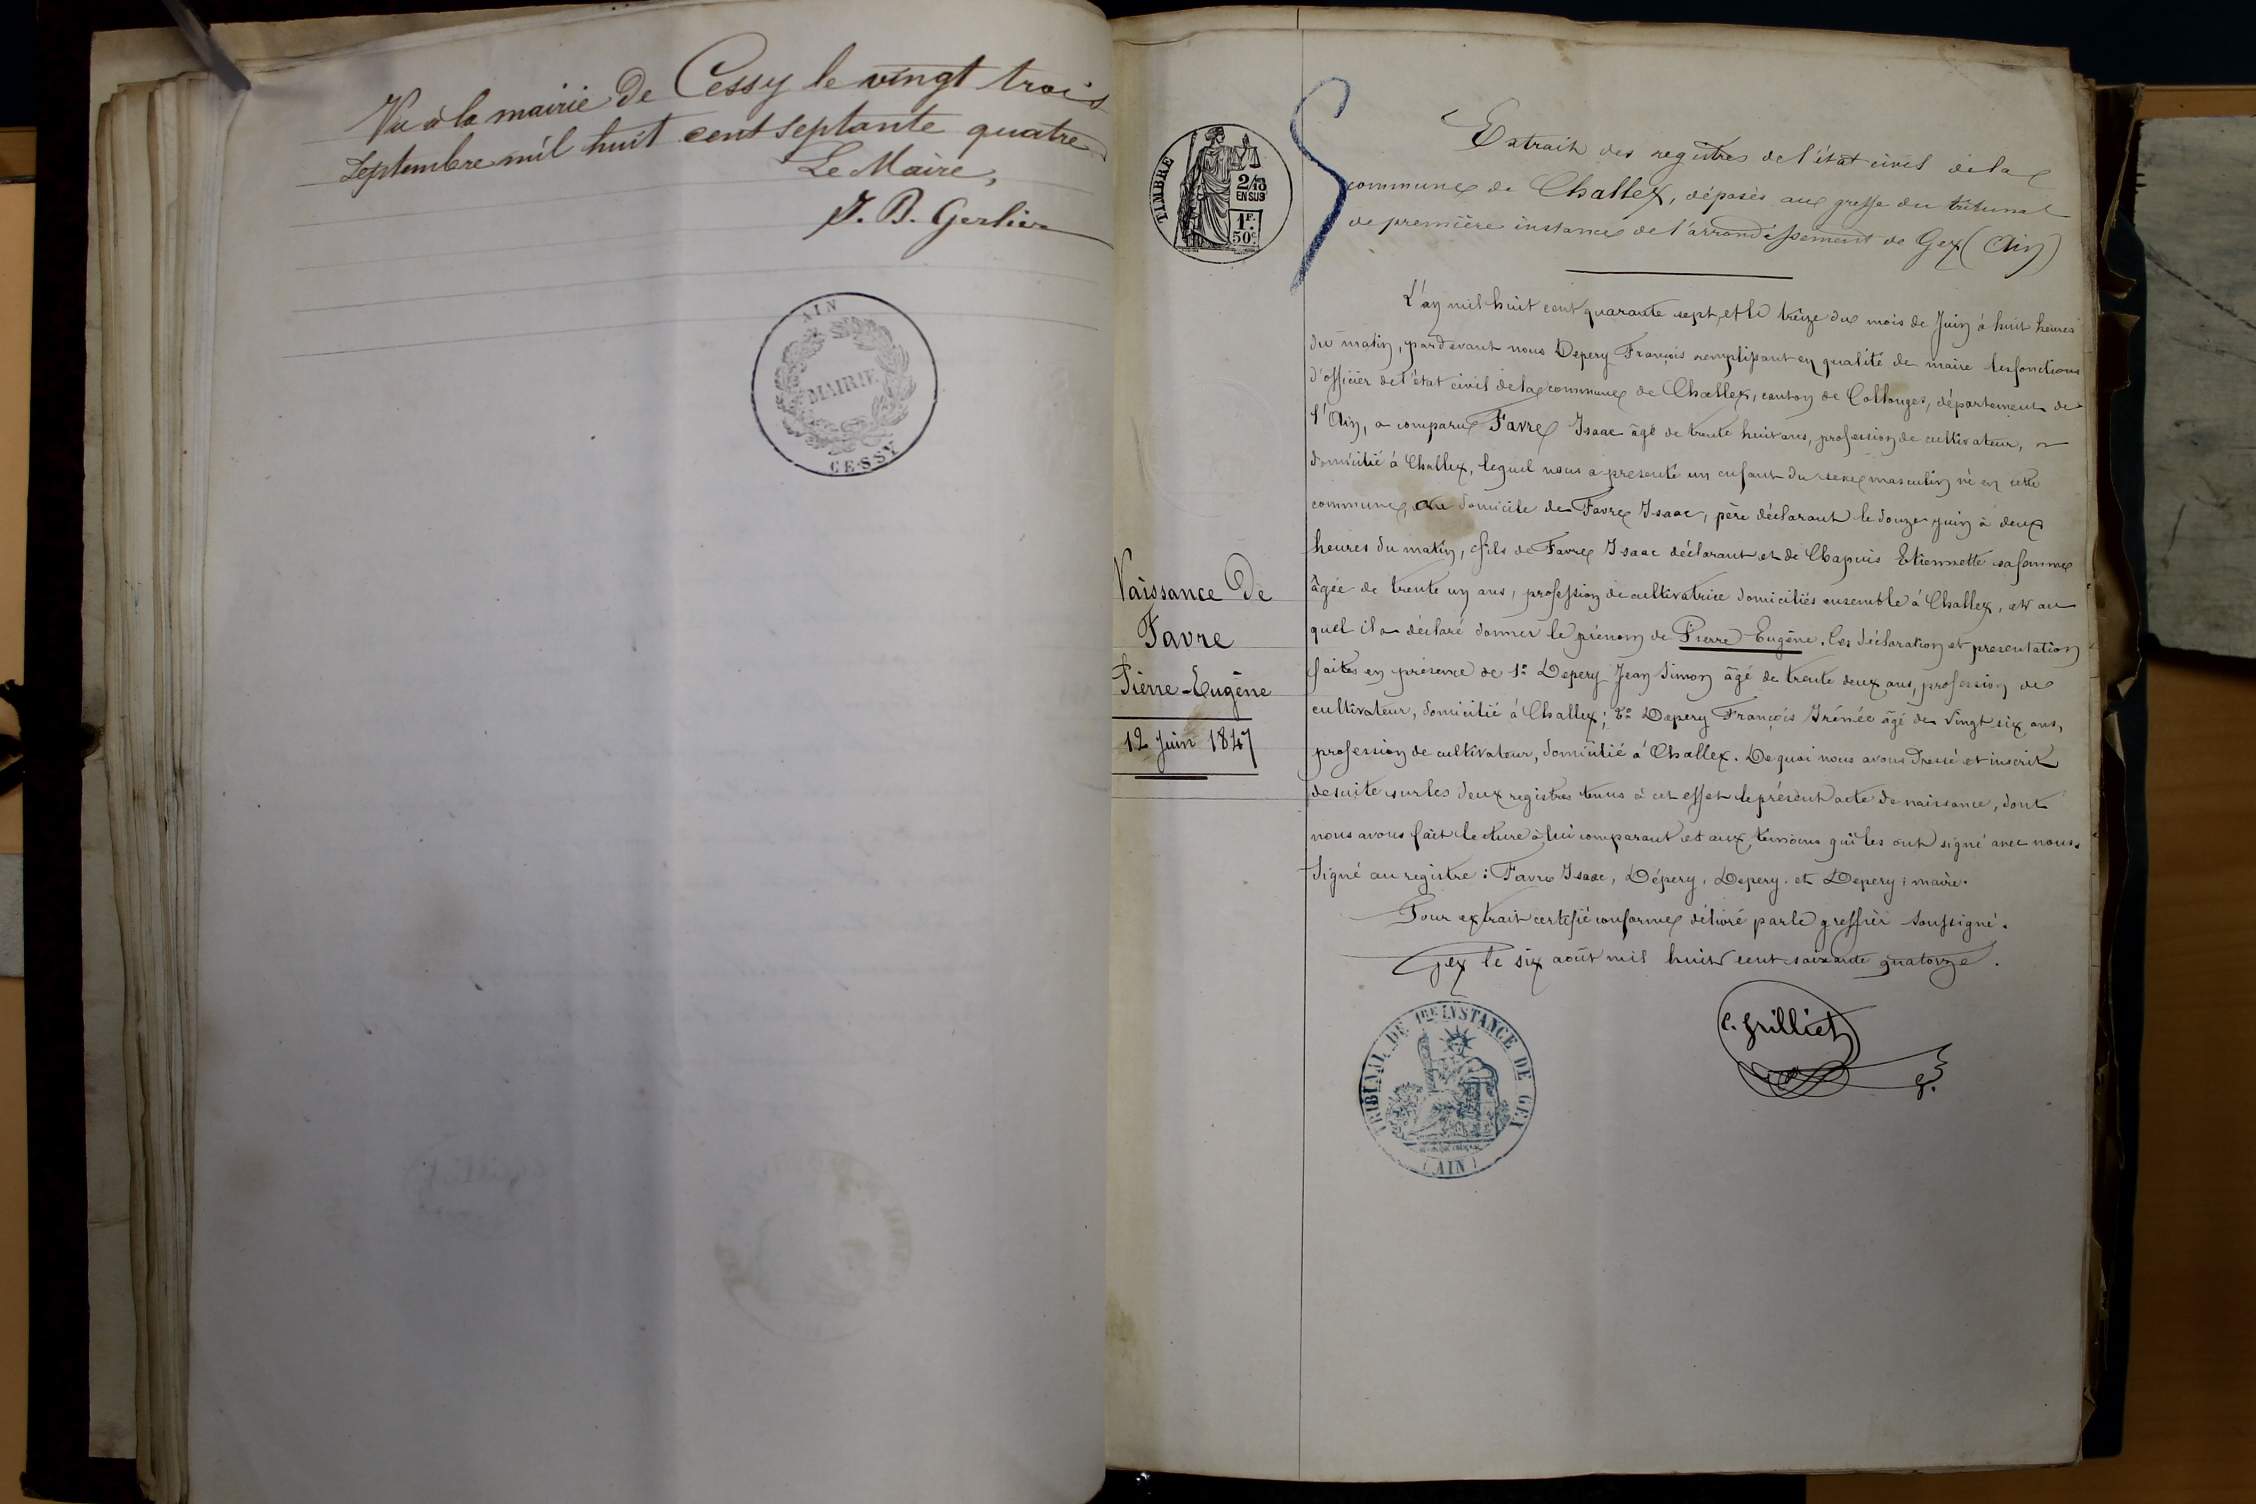 Vu à la mairie de Cessy le vingt trois
Septembre mil huit cent septante quatre
Le Maire,
J. B. Gerlier
AIN
MAIRIE
CESSY
TIMBRE
2/10
EN SUS
1F.
50c.
Extrait des registres de l'état civil de la
commune de Challex, déposés au greffe du tribunal
de première instance de l'arrondissement de Gex (Ain)
L'an mil huit cent quarante sept, et le treize du mois de Juin à huit heures
du matin, pardevant nous Depery François remplissant en qualité de maire les fonctions
d'officier de l'état civil de la commune de Challex, canton de Collonges, département de
l'Ain, a comparu Favre Isaac âgé de trente huit ans, profession de cultivateur,
domicilié à Challex, lequel nous a presenté un enfant du sexe masculin né en cette
commune, au domicile de Favre Isaac, père déclarant le douze juin à deux
heures du matin, fils de Favre Isaac déclarant et de Chapuis Etiennette sa femme
âgée de trente un ans, profession de cultivatrice domiciliés ensemble à Challex, et au
quel il a déclaré donner le prénom de Pierre Eugène. Ces déclaration et presentation
faites en présence de 1º Depery Jean Simon âgé de trente deux ans, profession de
cultivateur, domicilié à Challex; 2º Depery François Irénée âgé de vingt six ans,
profession de cultivateur, domicilié à Challex. De quoi nous avons dressé et inscrit
de suite sur les deux registres tenus à cet effet le présent acte de naissance, dont
nous avons fait lecture à lui comparant et aux témoins qui les ont signé avec nous.
Signé au registre : Favre Isaac, Dépery, Depery. et Depery, maire.
Pour extrait certifié conforme délivré par le greffier soussigné.
Gex le six août mil huit cent soixante quatorze.
C. Grilliet
g.
Naissance de
Favre
Pierre-Eugène
12 Juin 1847
TRIBUNAL DE 1RE INSTANCE DE GEX
(AIN)